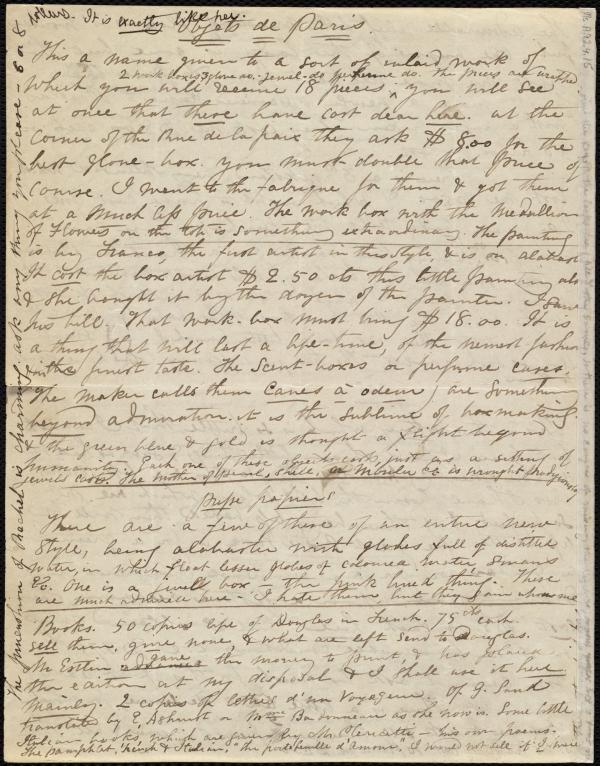 dollars. It is exactly like her.
Objets de Paris.
This a name given to a sort of inlaid work of
2 work boxes 3 glove do. - jewel-do perfume do. The prices are
which you will receive 18 pieces, you will see
at once that these have cost dear here. at the
Corner of the Rue de la paix they ask $8.00 for the
best glove-box. you must double that price of
course. I went to the fabrique for them & got them
at a much less price. The work box with the Medallion
of Flowers on the top is something extraordinary. The painting
is by Franco, the first artist in this style, & is on alabaster
It cost the box artist $2.50 cts this little painting alone
& she bought it by the dozen of the painter. I saw
his bill. That work-box must bring $18.00. It is
a thing that will last a life-time, of the newest fashion
& the finest taste. The Scent-boxes or perfume cases,
The maker calls them Caves à odeur) are something
beyond admiration. it is the sublime of box making
& the green blue & gold is thought a flight beyond
humanity. Each one of these objects cost, just as a setting of
jewels costs. The mother of pearl, shell, or &c is wrought
presse papiers
There are a few of these of an entire new
style, being alabaster with globes full of distilled
water, in which float lesser globes of coloured water, Swans
&c. One is a jewel box - the pink lined thing. These
are much admired here - I hate them but they
Books. 50 copies life of Douglas in French. 75 cts each.
sell them, give none, & what are left send to Douglas.
Mr Estlin gave the money to print, & has placed
the edition at my disposal & I shall use it here
mainly. 2 copies of lettres d'un Voyageur. of G. Sand
translated by E. Ashurst or Mme Bardonneau as she now is. Some little
Italian books, which are given by Mr. - his own poems.
The pamphlet, French & Italian, "the portefeuille d'amour," I would not sell if I were
The dimension of Rachel is charming ask any thing you please - 5 or 8